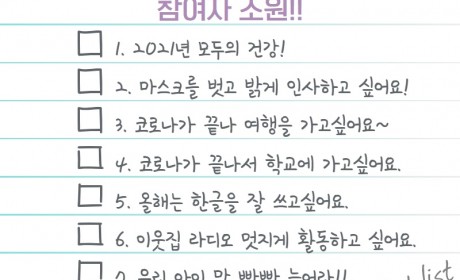 참여자 소원!!
1. 2021년 모두의 건강!
2. 마스크를 벗고 밝게 인사하고 싶어요!
3. 코로나가 끝나 여행을 가고싶어요~
4. 코로나가 끝나서 학교에 가고싶어요.
5. 올해는 한글을 잘 쓰고싶어요.
6. 이웃집 라디오 멋지게 활동하고 싶어요.
우리 아이 말 빵빵 늘어라!!
list